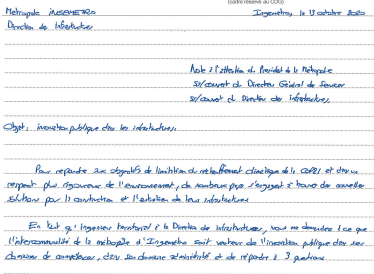 (cadre réservé au CDG)
Métropole INGEMETRO Ingemétro, le 13 octobre 2020
Direction des Infrastructures
Note à l'attention du Président de la Métropole
s/couvert du Directeur Général des Services
s/couvert du Directeur des infrastructures
Objet : innovation publique dans les infrastructures
Pour répondre aux objectifs de limitation du réchauffement climatique de la COP21 et d'un
respect plus rigoureux de l'environnement, de nombreux pays s'engagent à trouver de nouvelles
solutions pour la construction et l'entretien de leurs infrastructures
En tant qu'ingénieur territorial à la Direction des infrastructures, vous me demandez à ce que
l'intercommunalité de la métropole d'Ingemétro soit vecteur de l'innovation publique dans ses
domaines de compétences, dans son domaine administratif et de répondre à 3 questions.